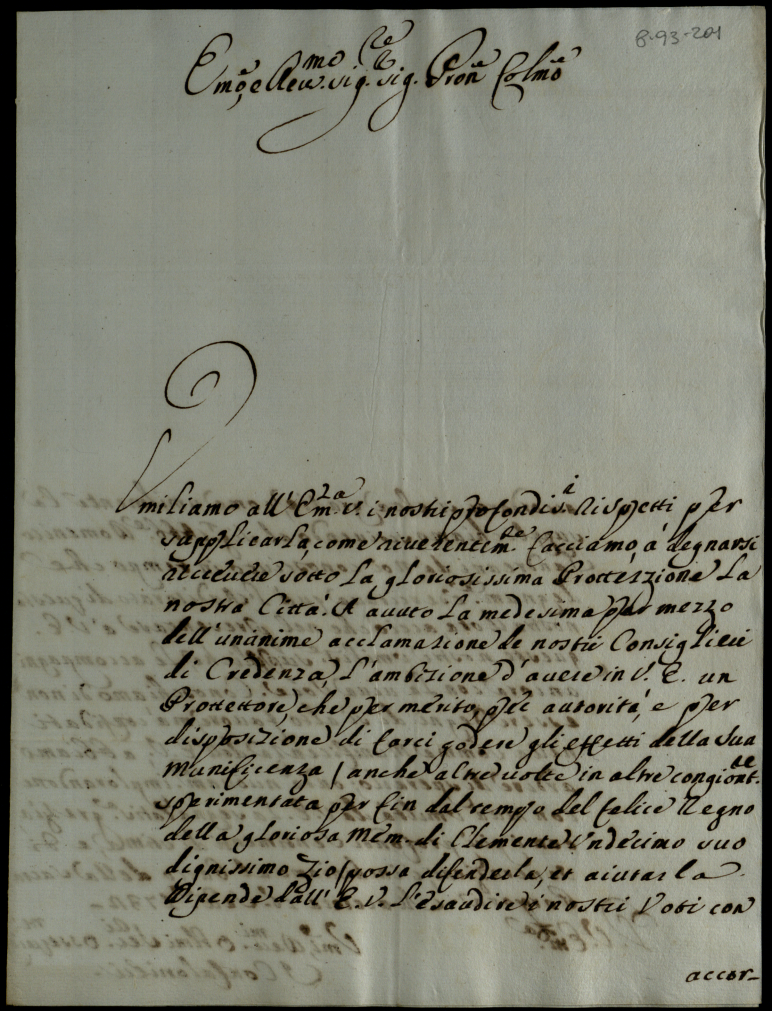 8-93-201
Em.o e Reu.mo Sig. Sig. Pron.e Col.mo
Vmiliamo all' Em.za V. i nostri profondis.i rispetti per
supplicarla, come riuerentem.te facciamo, à degnarsi
riceuere sotto la gloriosissima Protezzione la
nostra Città. A auuto la medesima per mezzo
dell'unanime acclamazione de nostri Consiglieri
di Credenza, l'ambizione d'auere in V. E. un
Protettore, che per merito, per autorità, e per
disposizione di farci godere gli effetti della sua
munificenza / anche altre uolte in altre congiont.te
sperimentata per fin dal tempo del felice Regno
della gloriosa mem. di Clemente Undecimo suo
dignissimo Zio / possa difenderla, et aiutarla.
Dipende dall' E. V. l'esaudire i nostri Voti con
accor-